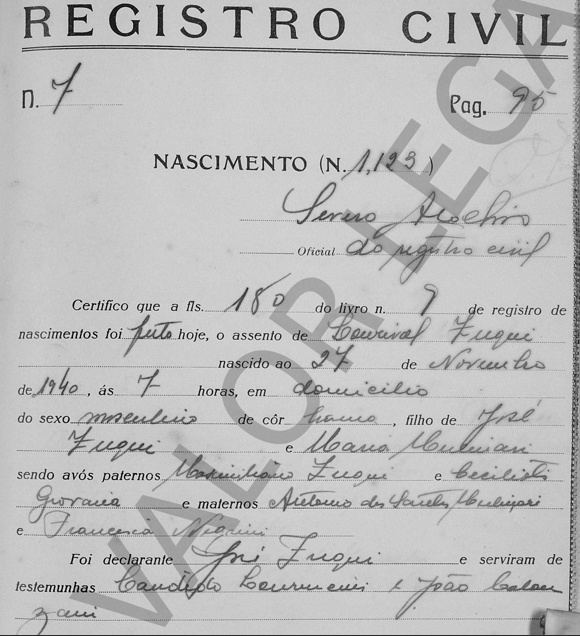 REGISTRO CIVIL
n. 7 Pag. 95
NASCIMENTO (N. 1,123)
Oficial do registro civil
Certifico que a fls. 180 do livro n. 9 de registro de
nascimentos foi feito hoje, o assento de Lourival Fuqui
nascido ao 27 de Novembro
de 1940, ás 7 horas, em domicilio
do sexo masculino de côr branca, filho de José
Fuqui e Maria
sendo avós paternos Maximiliano Fuqui e
Giovana e maternos Antonio dos Santos
e Francesca
Foi declarante José Fuqui e serviram de
testemunhas Candido e João
zani
VALOR LEGA